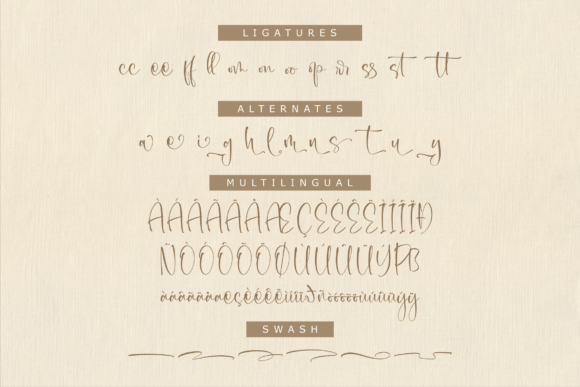 LIGATURES
cc ee ff ll om on oo op rr ss st tt
ALTERNATES
a e i g h l m n s t u y
MULTILINGUAL
ÀÁÂÃÄÅÆÇÈÉÊËÌÍÎÏÐ
ÑÒÓÔÕÖØÙÚÛÜÝÞß
SWASH